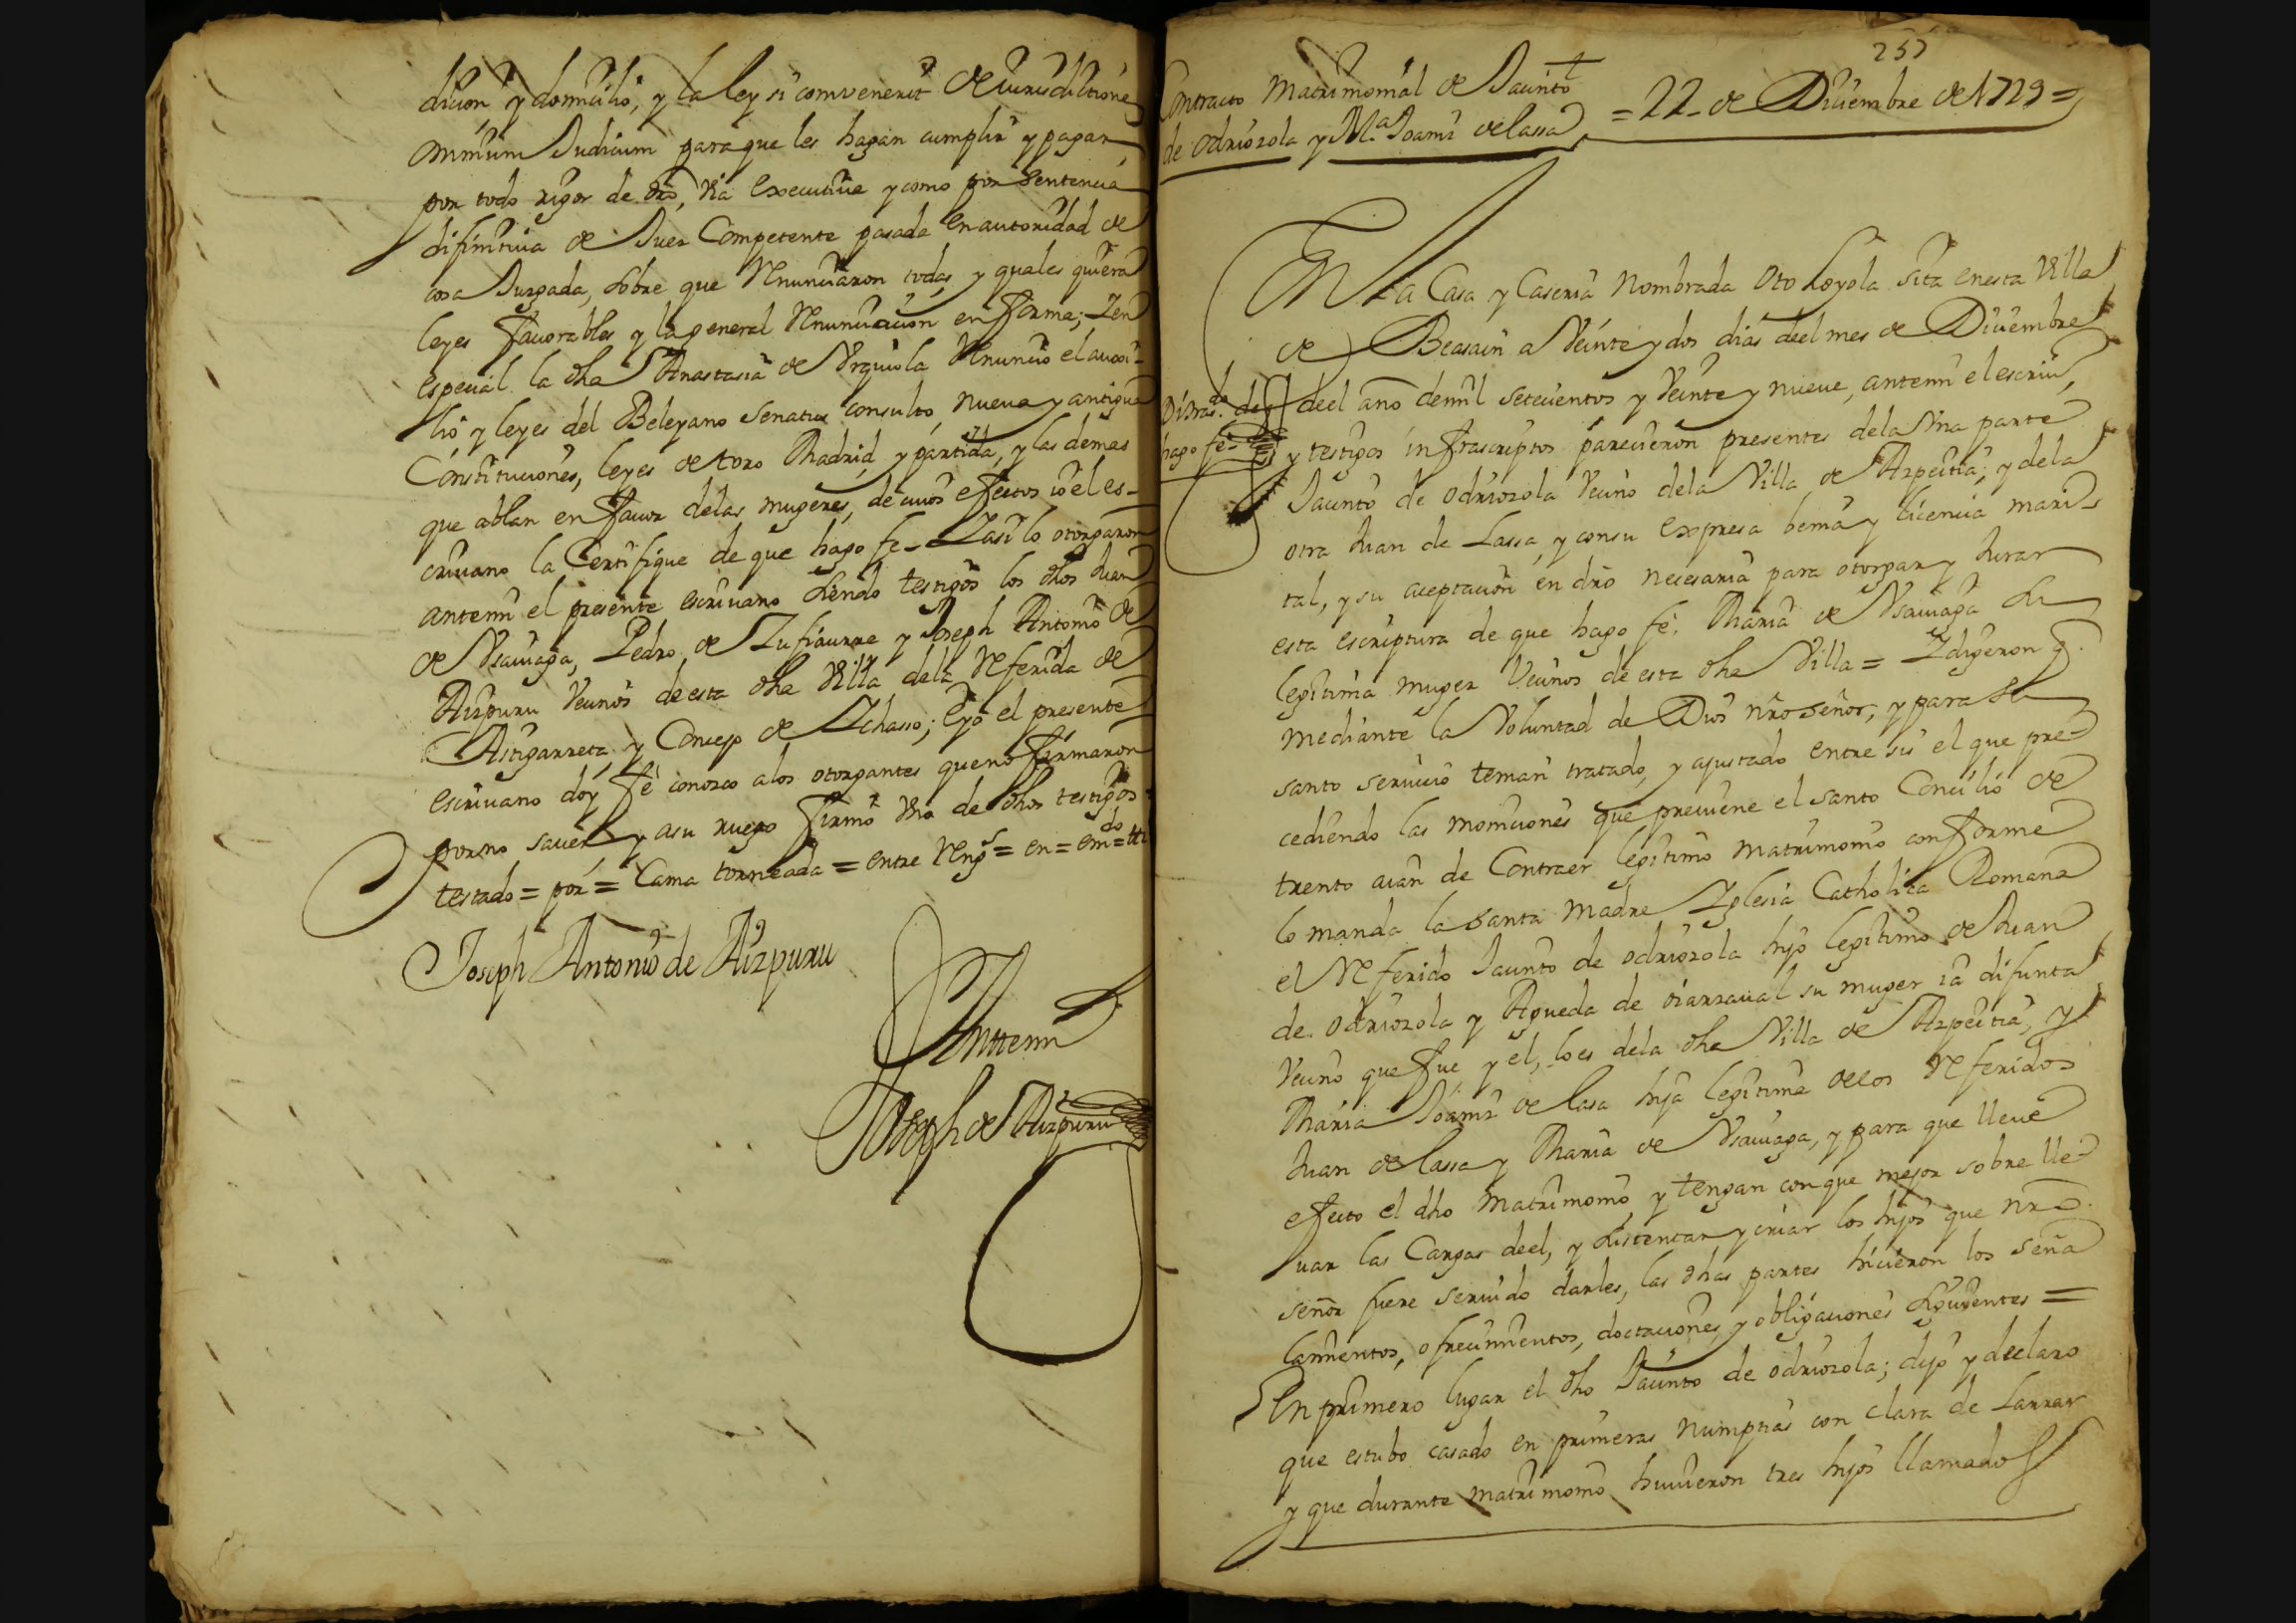 dicion, y domicilio, y la ley si combenerit de Jurisdictione
omnium Judicum para que les hagan cumplir y pagar
por todo rigor de dro, via executiva y como por sentencia
difinitiva de Juez Competente pasada en autoridad de
cosa Juzgada, sobre que Renunciaron todas y quales quiera
leyes favorables y la general Renunciacion en forma; Y en
especial la dha Anastasia de Vrquiola Renuncio el auxi-
lio y leyes del Beleyano Senatus consulto, nueva y antigua
Constituciones, leyes de toro Madrid y partida, y las demas
que ablan en favor delas mugeres, de cuios efectos io el es-
crivano la Certifique de que hago fe - Y asi lo otorgaron
antemi el presente escrivano siendo testigos los dhos Juan
de Vsaviaga, Pedro de Zufiaurre y Joseph Antonio de
Aizpuru Vecinos de esta dha Villa dela Referida de
Astigarreta, y Concejo de Ychasso; E yo el presente
escrivano doy fe conozco a los otorgantes que no firmaron
por no saver y a su ruego firmo Vno de dhos testigos
testado = por = Cama torneada = entre Rengs = en = emdo =
Joseph Antonio de Aizpuru
Anttemi
Joseph de Aizpuru
257
Contracto Matrimonial de Jacinto
de Odriozola y Ma Joani de lassa = 22 - de Diciembre de 1729 =
En la Casa y Caseria Nombrada Oto Loyola sita en esta Villa
de Beasain a Veinte y dos dias deel mes de Diciembre
deel año demil setecientos y Veinte y nueve, antemi el escriv,
hago fe
y testigos infrascriptos parecieron presentes dela Vna parte
Jacinto de Odriozola Vecino dela Villa de Azpeitia; y dela
otra Juan de Lassa, y con su expresa benia y licencia mari-
tal, y su aceptacion en dro necesaria para otorgar y Jurar
esta escriptura de que hago fe, Maria de Vsaviaga su
legitima muger Vecinos de esta dha Villa = Y digeron q.
mediante la Voluntad de Dios nro señor, y para su
santo servicio tenian tratado, y ajustado entre sis el que pre-
cediendo las moniciones que previene el santo Concilio de
trento aian de Contraer legitimo matrimonio conforme
lo manda la santa Madre Yglesia Catholica Romana
el Referido Jacinto de Odriozola hijo legitimo de Juan
de Odriozola y Agueda de oiarzaval su muger ia difunta
Vecino que fue, y el, lo es dela dha Villa de Azpeitia, y
Maria Joani de lasa hija legitima delos Referidos
Juan de lassa y Maria de Vsaviaga, y para que lleve
efecto el dho Matrimonio, y tengan con que mejor sobre lle-
var las Cargas deel, y sustentar y criar los hijos que nro.
señor fuere servido darles, las dhas partes hicieron los seña
lamientos, ofrecimientos, doctaciones y obligaciones siguientes =
En primero lugar el dho Jacinto de odriozola; dijo y declaro
que estubo casado en primeras numptias con Clara de Larrar
y que durante matrimonio huvieron tres hijos llamados